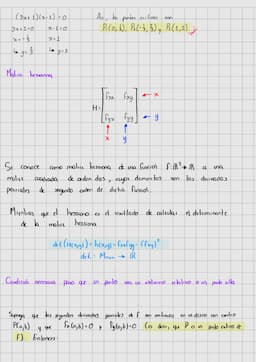 (3x+1)(x-1) = 0
3x+1=0 x-1=0
x=-1/3 x=1
Así, los puntos críticos son
Matriz hessiana
H = [fxx fxy] ← x
[fyx fyy] ← y
x y
Se conoce como matriz hessiana de una función f: ℝ² → ℝ a una
matriz cuadrada de orden dos, cuyos elementos son las derivadas
parciales de segundo orden de dicha función.
Mientras que el hessiano es el resultado de calcular el determinante
de la matriz hessiana
det(H(x,y)) = h(x,y) = fxx fyy - (fxy)²
→ ℝ
Condición necesaria para que un punto sea un extremo relativo o un punto silla
Suponga que las segundas derivadas parciales de f son continuas en un disco con centro
P(a,b) y que fx(a,b)=0 y fy(a,b)=0 (es decir, que P es un punto crítico de
f) Entonces: